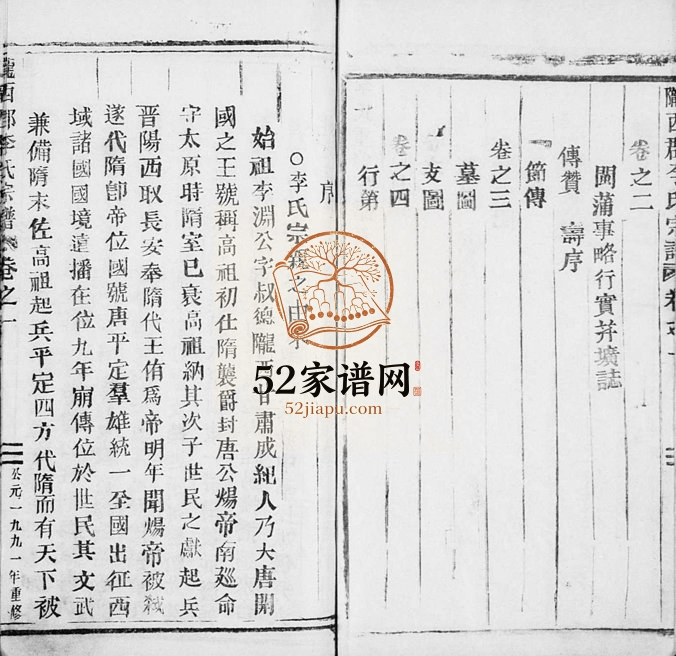 隴西郡李氏宗譜
卷之二
閩蒲事略行實并壙誌
傳贊 壽序
節傳
卷之三
墓圖
支圖
卷之四
行第
序
○李氏宗
之由
始祖李淵公字叔德隴西甘肅成紀人乃大唐開
國之王號稱高祖初仕隋襲爵封唐公煬帝南巡命
守太原時隋室已衰高祖納其次子世民之獻起兵
晋陽西取長安奉隋代王侑爲帝明年聞煬帝被弑
遂代隋卽帝位國號唐平定羣雄統一全國出征西
域諸國國境遠播在位九年崩傳位於世民其文武
兼備隋末佐高祖起兵平定四方代隋而有天下被
隴西郡李氏宗譜
卷之一
公元一九九一年重修
52家谱网
52jiapu.com